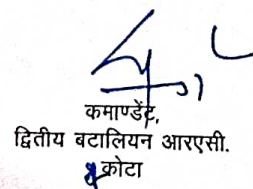 कमाण्डेंट,
द्वितीय बटालियन आरएसी.
कोटा